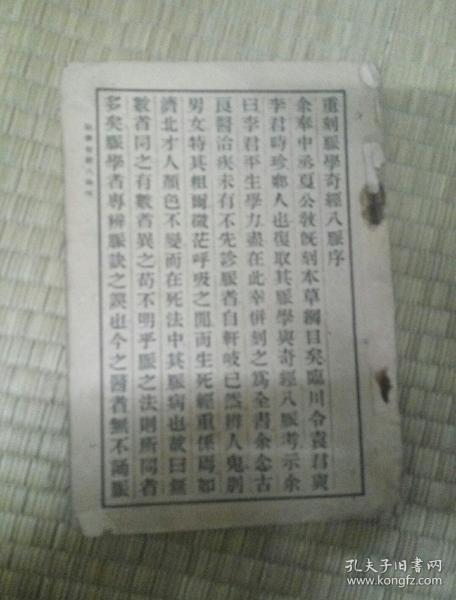 重刻脈學奇經八脈序
余奉中丞夏公教旣刻本草綱目矣臨川令袁君與
李君時珍鄉人也復取其脈學與奇經八脈考示余
曰李君平生學力盡在此幸併刻之爲全書余念古
良醫治疾未有不先診脈者自軒岐已然辨人鬼別
男女特其粗爾微茫呼吸之間而生死輕重係焉如
濟北才人顏色不變而在死法中其脈病也故曰無
數者同之有數者異之苟不明乎脈之法則所同者
多矣脈學者專辨脈訣之誤也今之醫者無不誦脈
孔夫子旧书网
www.kongfz.com